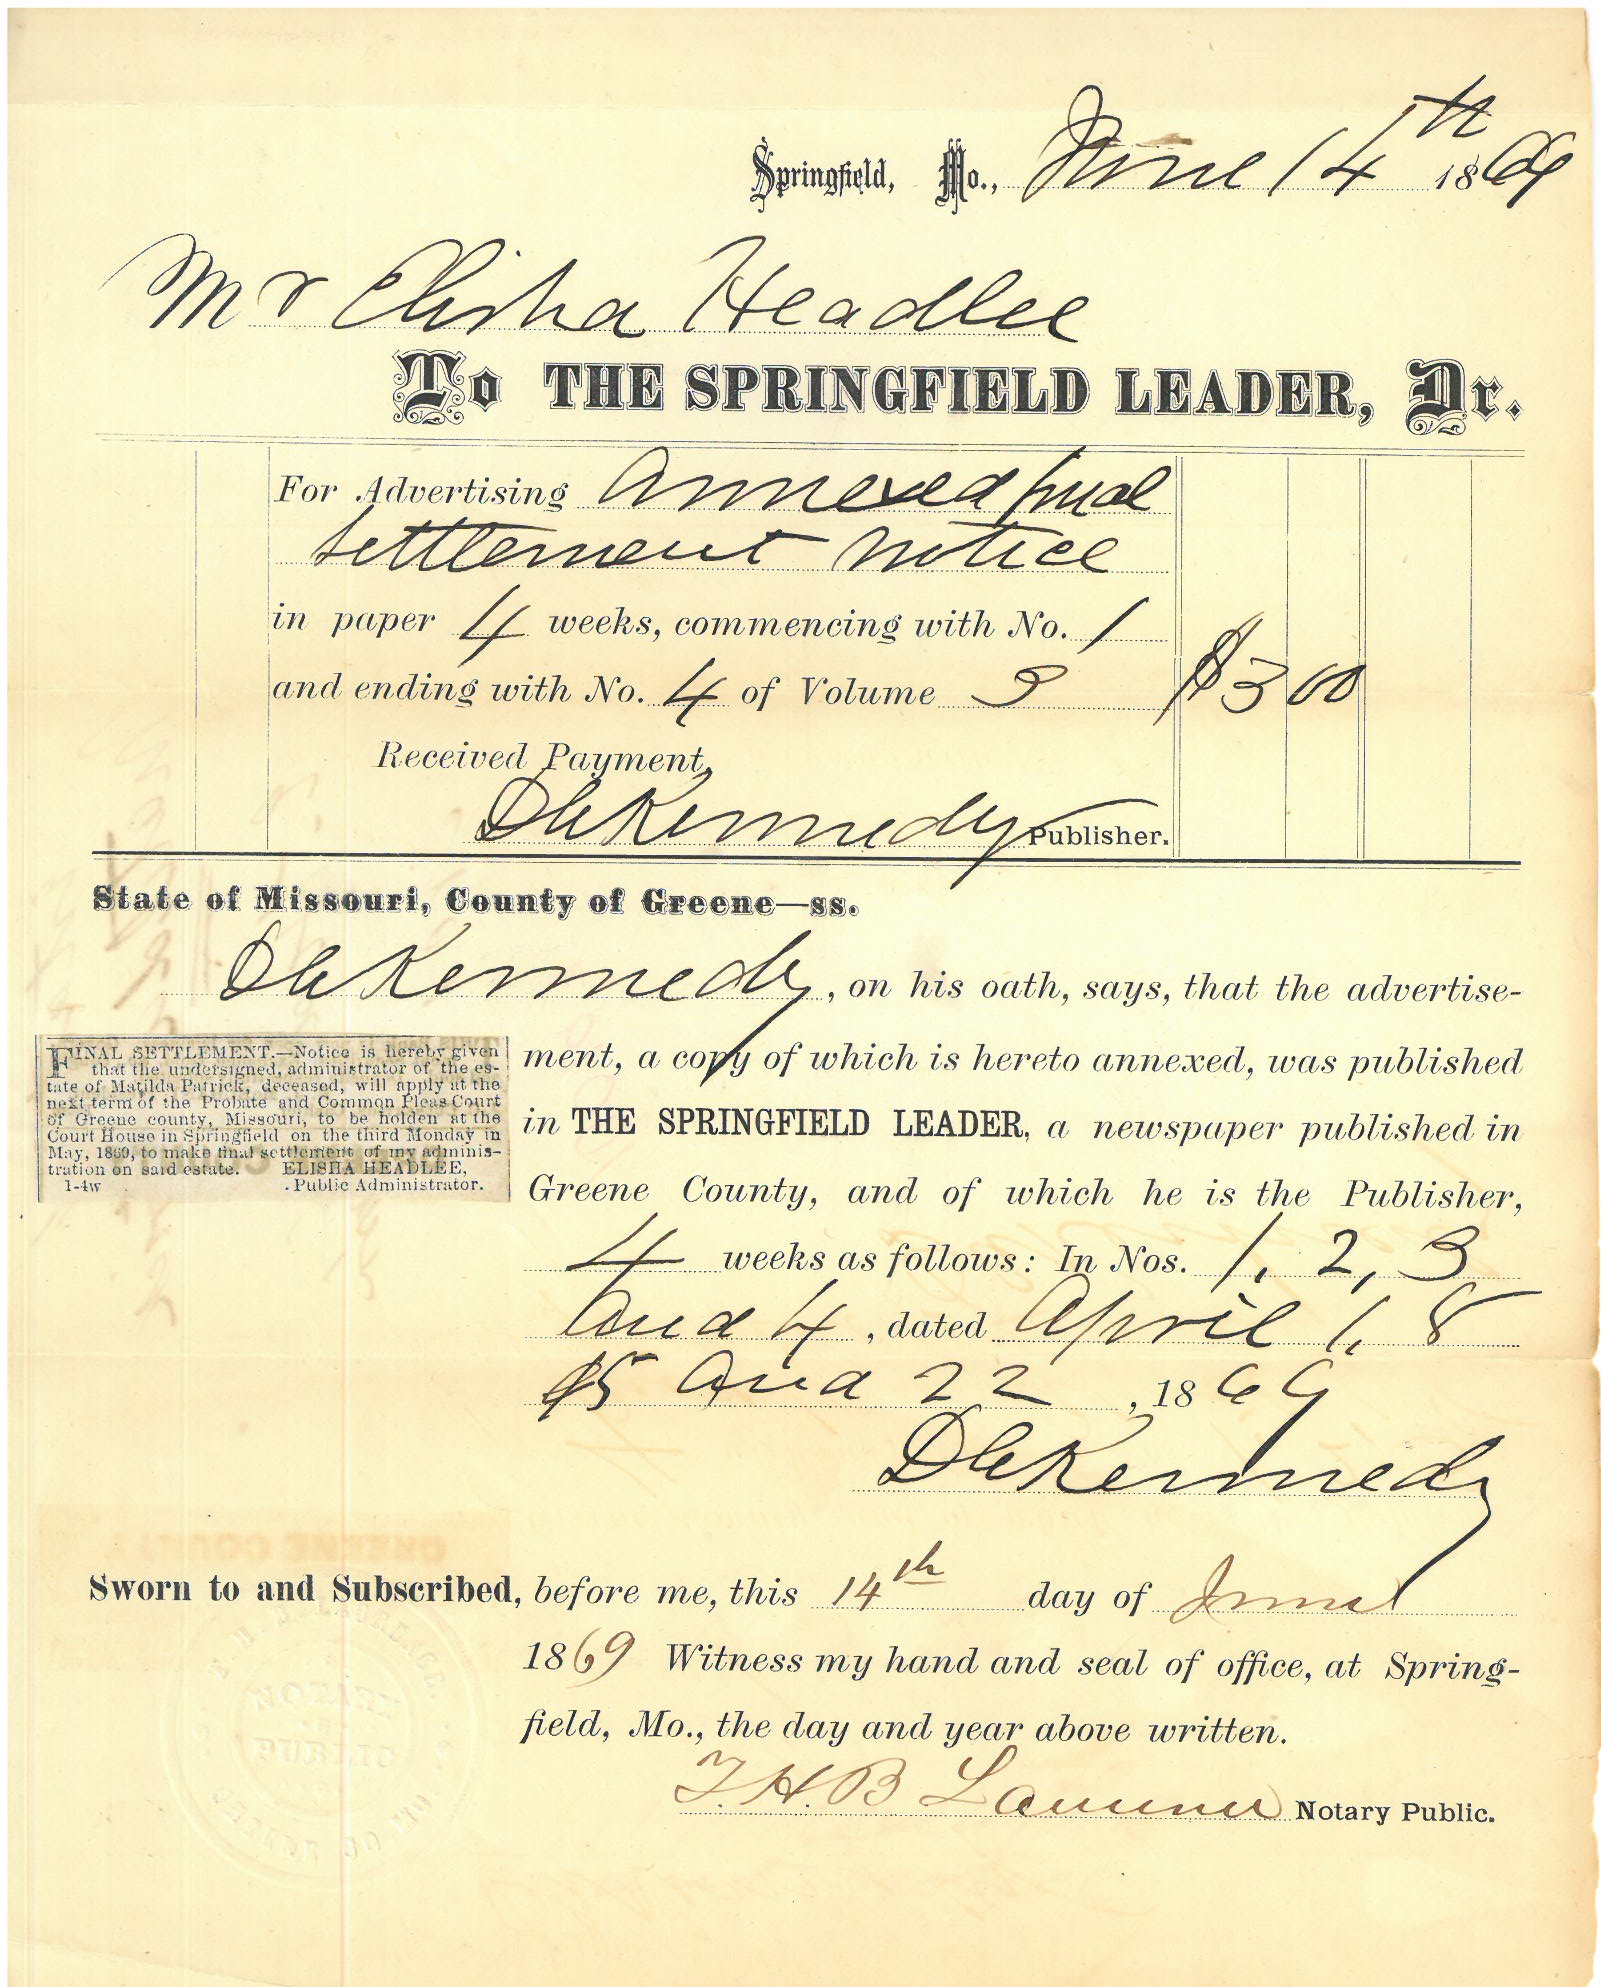 Springfield, Mo., June 14th 1869
Mr Elisha Headlee
To THE SPRINGFIELD LEADER, Dr.
For Advertising Annexed final
settlement notice
in paper 4 weeks, commencing with No. 1
and ending with No. 4 of Volume 3 $3 00
Received Payment,
D C Kennedy Publisher.
State of Missouri, County of Greene—ss.
D C Kennedy, on his oath, says, that the advertise-
ment, a copy of which is hereto annexed, was published
in THE SPRINGFIELD LEADER, a newspaper published in
Greene County, and of which he is the Publisher,
4 weeks as follows: In Nos. 1, 2, 3
and 4, dated April 1, 8
15 and 22, 1869
D C Kennedy
FINAL SETTLEMENT.—Notice is hereby given
that the undersigned, administrator of the es-
tate of Matilda Patrick, deceased, will apply at the
next term of the Probate and Common Pleas Court
of Greene county, Missouri, to be holden at the
Court House in Springfield on the third Monday in
May, 1869, to make final settlement of my adminis-
tration on said estate. ELISHA HEADLEE,
1-4w Public Administrator.
Sworn to and Subscribed, before me, this 14th day of June
1869 Witness my hand and seal of office, at Spring-
field, Mo., the day and year above written.
T. H. B. Notary Public.
NOTARY
PUBLIC